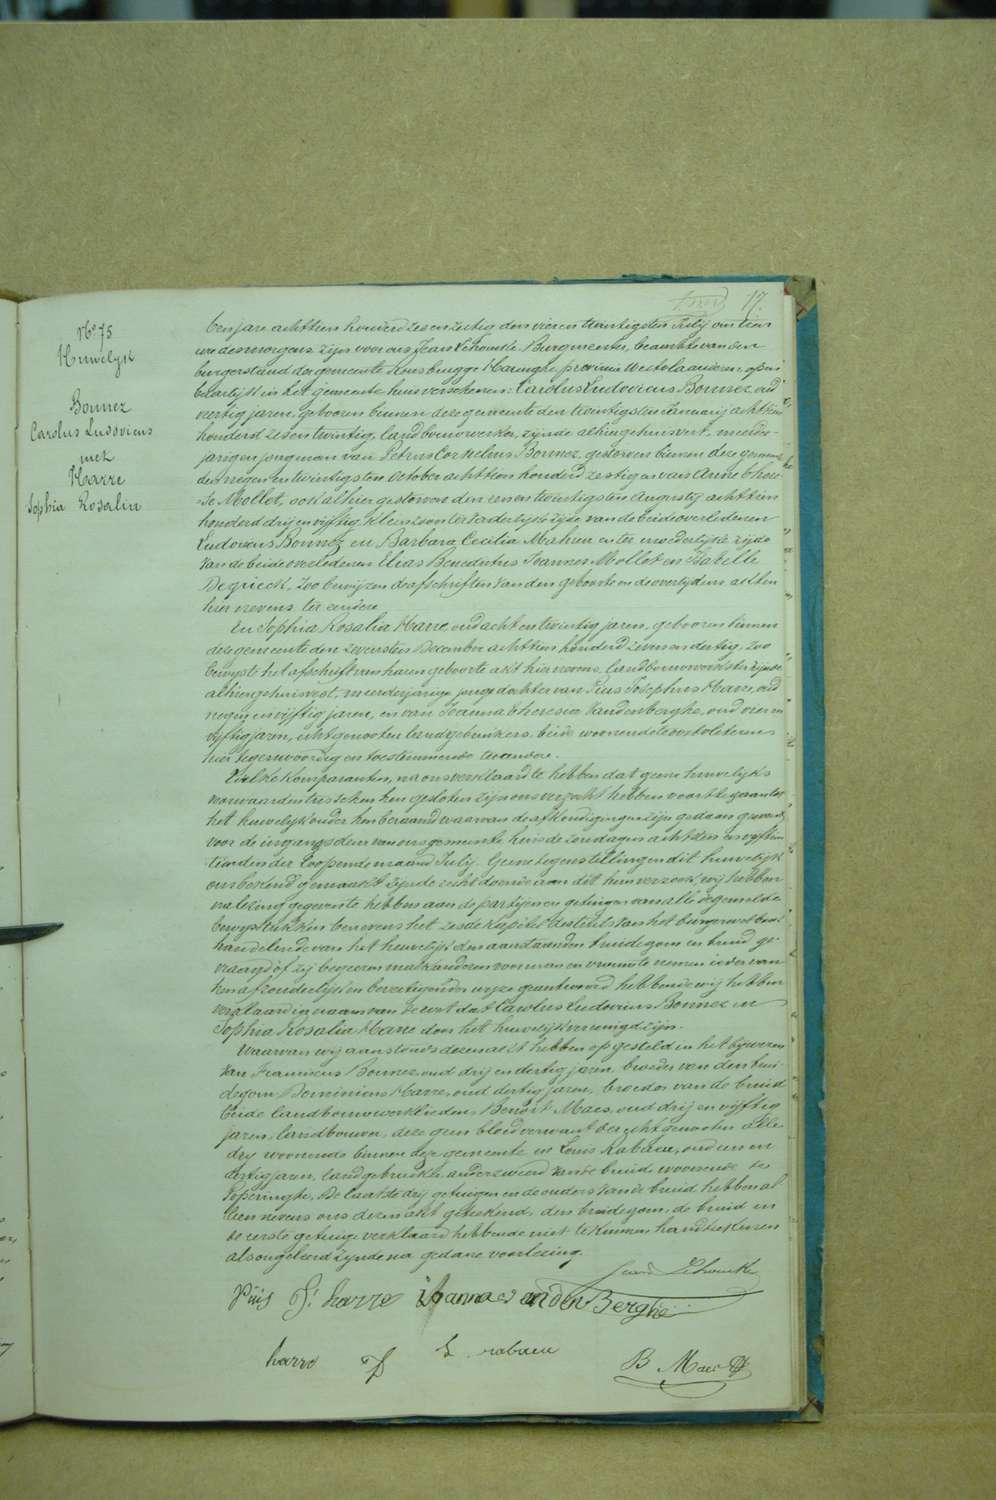 17.
No 75
Huwelyk
Bonnez
Carolus Ludovicus
met
Harre
Sophia Rosalia
Ten jare achttien honderd zes en zestig den vier en twintigsten July om tien
ure des morgens zyn voor ons Jean Lehoucke Burgmeester, beambte van den
burgerstand der gemeente Rousbrugge Haringhe provincie Westvlaanderen open
baarlyk in het gemeente huis verschenen: Carolus Ludovicus Bonnez oud
veertig jaren, geboren binnen deze gemeente den twintigsten January achttien
honderd zes en twintig, landbouwwerker, zynde alhier gehuisvest, meerder
jarigen jongman van Petrus Cornelius Bonnez gestorven binnen deze gemeente
den negen en twintigsten October achttien honderd zestig en van Anne There
se Mollet, ook alhier gestorven den een en twintigsten Augusty achttien
honderd dry en vyftig, kleinzoon ter vaderlyke zyde van de beide overledenen
Ludovicus Bonnez en Barbara Cecilia Mahieu en ter moederlyke zyde
van de beide overledenen Elias Benedictus Joannes Mollet en Isabelle
Degrieck, Zoo bewyzen de afschriften van den geboorte en de overlydens akten
hier nevens ter eindere
En Sophia Rosalia Harre, oud acht en twintig jaren, geboren binnen
deze gemeente den zevensten December achttien honderd zeven en dertig, zoo
bewyst het afschrift van haren geboorte akt hier nevens, landbouwwerkster zynde
alhier gehuisvest, meerderjarige jonge dochter van Pius Josephus Harre, oud
negen en vyftig jaren, en van Joanna Theresia Vandenberghe, oud vier en
vyftig jaren, echtgenooten landgebruikers, beide woonende te Oostvleteren
hier tegenwoordig en toestemmende
Welke komparanten, na ons verklaard te hebben dat geene huwelyks
voorwaarden tusschen hen gesloten zyn ons verzocht hebben voort te gaan tot
het huwelyk onder hen beraamd waarvan de afkondigingen zyn gedaan geweest
voor de ingangsdeur van ons gemeente huis de zondagen achtsten en vyftien
tienden der loopende maand July. Geene tegenstellingen dit huwelyk
ons bekend gemaakt zynde recht doende aan dit hun verzoek, wy hebben
na lezing gegeven te hebben aan de partyen en getuigen van alle de gemelde
bewysstukken benevens het zesde kapitel des titels van het burgerwetboek
handelende van het huwelyk den aanstaanden bruidegom en bruid ge
vraagd of zy begeeren malkanderen voor man en vrouw te nemen ieder van
hen afzonderlyk en bevestigender wyze geantwoord hebbende wy hebben
verklaard in naam van de wet dat Carolus Ludovicus Bonnez en
Sophia Rosalia Harre door het huwelyk vereenigd zyn.
Waarvan wy aanstonds dezen akt hebben opgesteld in het bywezen
van Franciscus Bonnez, oud dry en dertig jaren, broeder van den brui
degom Dominicus Harre, oud dertig jaren, broeder van de bruid
beide landbouwwerklieden, Benoit Maes, oud dry en vyftig
jaren, landbouwer, deze geen bloedverwant der echtgenooten alle
dry woonende binnen deze gemeente en Louis Rabaeu, oud een en
dertig jaren, landgebruiker, anderzweerd van de bruid woonende te
Poperinghe, De laatste dry getuigen en de ouders van de bruid hebben al
leen nevens ons dezen akt geteekend, den bruidegom, de bruid en
de eerste getuige verklaard hebbende niet te kunnen handteekenen
als ongeleerd zynde na gedane voorlezing.
Jean Lehoucke
Pius J. harre ioanna vandenBerghe
harre D L rabaeu B Maes